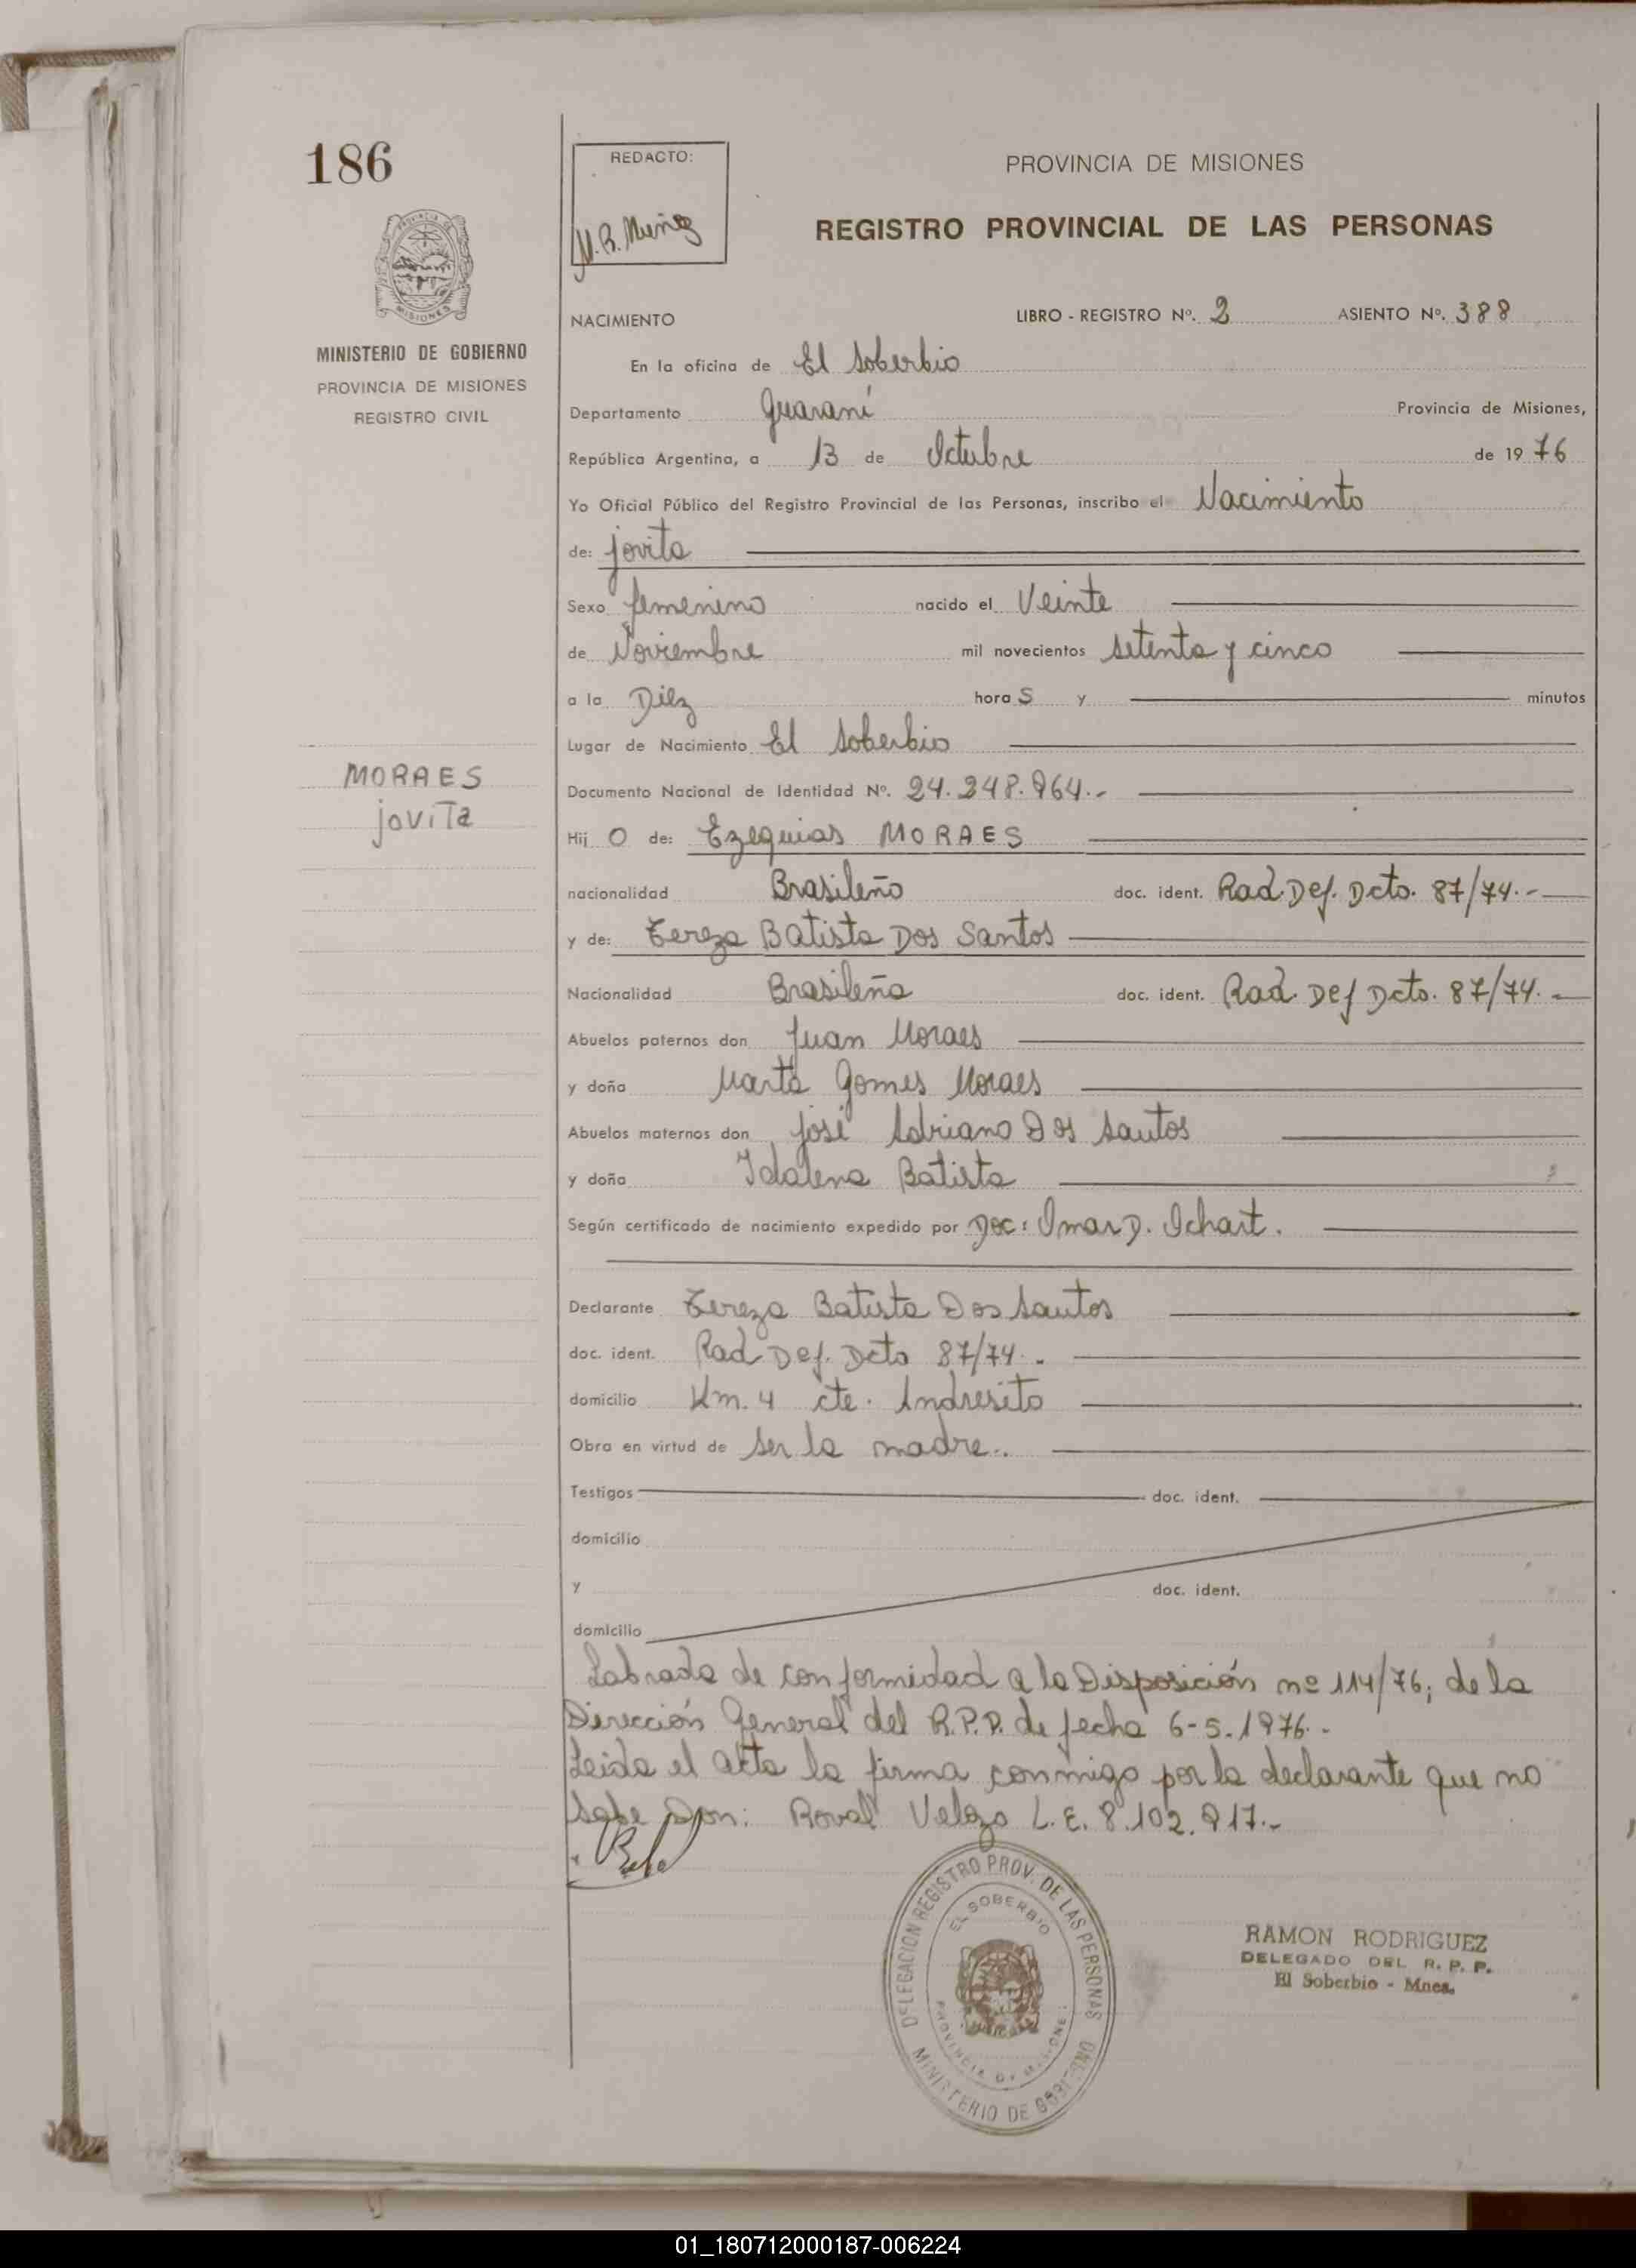 186
REDACTO:
M.R. Muñoz
PROVINCIA DE MISIONES
REGISTRO PROVINCIAL DE LAS PERSONAS
MISIONES
MINISTERIO DE GOBIERNO
PROVINCIA DE MISIONES
REGISTRO CIVIL
NACIMIENTO LIBRO - REGISTRO Nº. 2 ASIENTO Nº. 388
En la oficina de El Soberbio
Departamento Guaraní Provincia de Misiones,
República Argentina, a 13 de Octubre de 1976
Yo Oficial Público del Registro Provincial de las Personas, inscribo el Nacimiento
de: Jovita
Sexo femenino nacido el Veinte
de Noviembre mil novecientos setenta y cinco
a la Diez hora s y minutos
Lugar de Nacimiento El Soberbio
Documento Nacional de Identidad Nº. 24.248.964.-
MORAES
jovita
Hij o de: Ezequias MORAES
nacionalidad Brasileño doc. ident. Rad. Def. Dcto. 87/74.-
y de: Tereza Batista Dos Santos
Nacionalidad Brasileña doc. ident. Rad. Def Dcto. 87/74.-
Abuelos paternos don Juan Moraes
y doña Marta Gomes Moraes
Abuelos maternos don José Adriano Dos Santos
y doña Idalena Batista
Según certificado de nacimiento expedido por Doc: Omar D. Ichart.
Declarante Tereza Batista Dos Santos
doc. ident. Rad Def. Dcto 87/74.-
domicilio Km. 4 cte. Andresito
Obra en virtud de ser la madre..
Testigos doc. ident.
domicilio
y doc. ident.
domicilio
Labrada de conformidad a la Disposición nº 114/76; de la
Dirección General del R.P.P. de fecha 6-5-1976.-
Leida el acta la firma conmigo por la declarante que no
sabe Don: Roval Velozo L.E. 8.102.917.-
DELEGACION REGISTRO PROV. DE LAS PERSONAS
EL SOBERBIO
PROVINCIA DE MISIONES
MINISTERIO DE GOBIERNO
RAMON RODRIGUEZ
DELEGADO DEL R. P. P.
El Soberbio - Mnes.
01_180712000187-006224